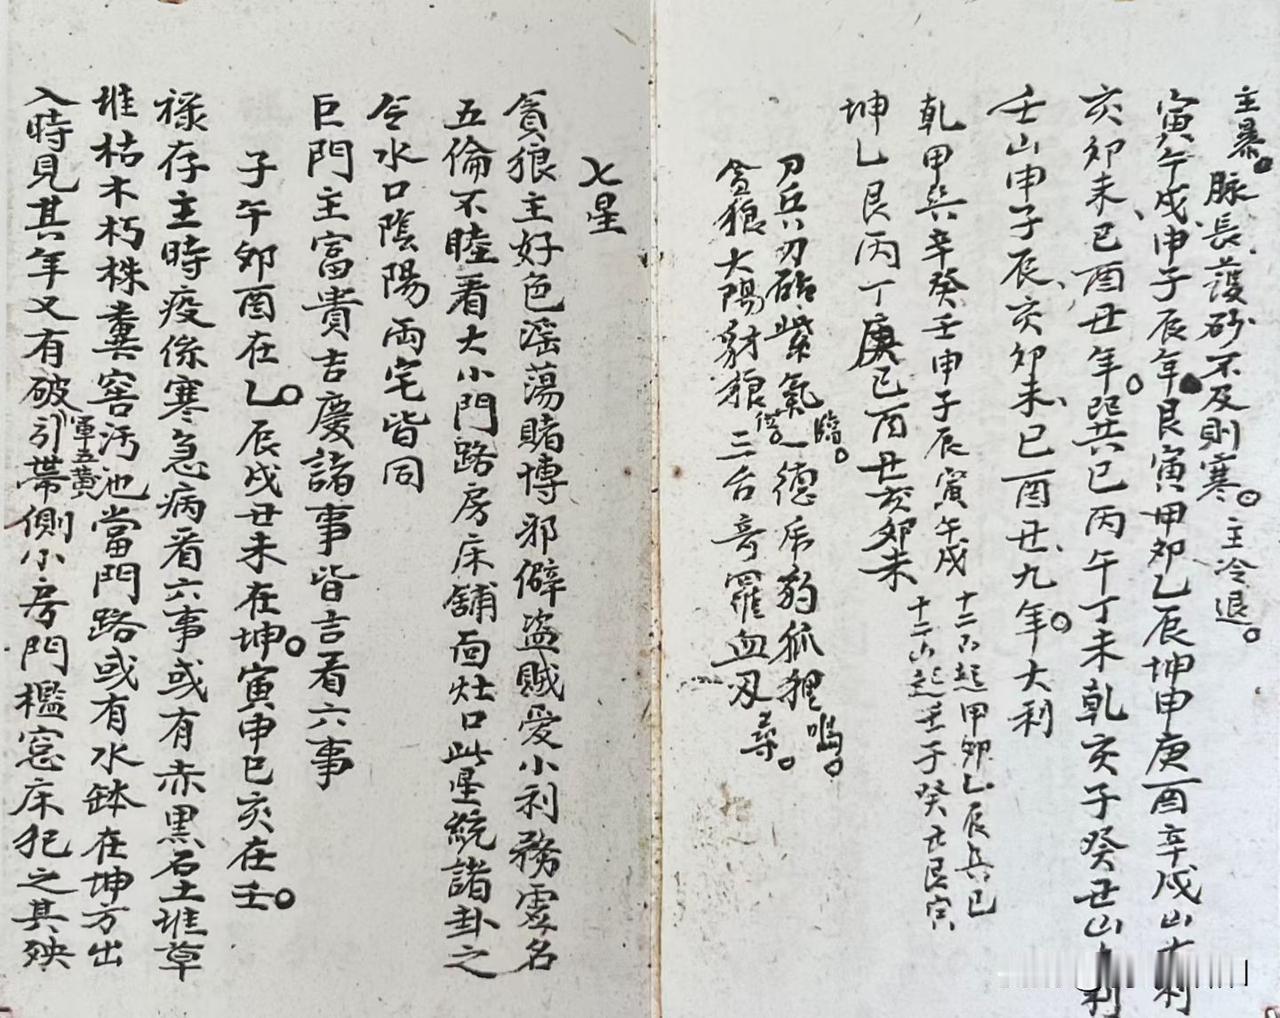 主暴。脉長護砂不及則寒。主冷退。
寅午戌、申子辰年艮寅甲卯乙辰坤申庚酉辛戌山大利
亥卯未巳酉丑年。巽巳丙午丁未乾亥子癸丑山大利
壬山申子辰、亥卯未、巳酉丑、九年。大利
乾甲兵辛癸壬申子辰寅午戌 十二山起甲卯乙辰兵巳
坤乙艮丙丁庚巳酉丑亥卯未 十二山起壬子癸丑艮寅
刀兵刃砧紫氣臨。一德帍豹狐狸鳴。
貪狼大陽豺狼 二台奇羅血刃尋。
七星
貪狼主好色滛蕩賭博邪僻盗賊愛小利務虛名
五倫不睦看大小門路房床舖面灶口此星統諸卦之
令水口陰陽両宅皆同
巨門主富貴吉慶諸事皆吉看六事
子午卯酉在乙。辰戌丑未在坤。寅申巳亥在壬。
禄存主時疫係寒急病看六事或有赤黒石土堆草
堆枯木朽株糞窖汚池當門路或有水缽在坤方出
入時見其年又有破軍五黃引帶側小房門檻窓床犯之其殃